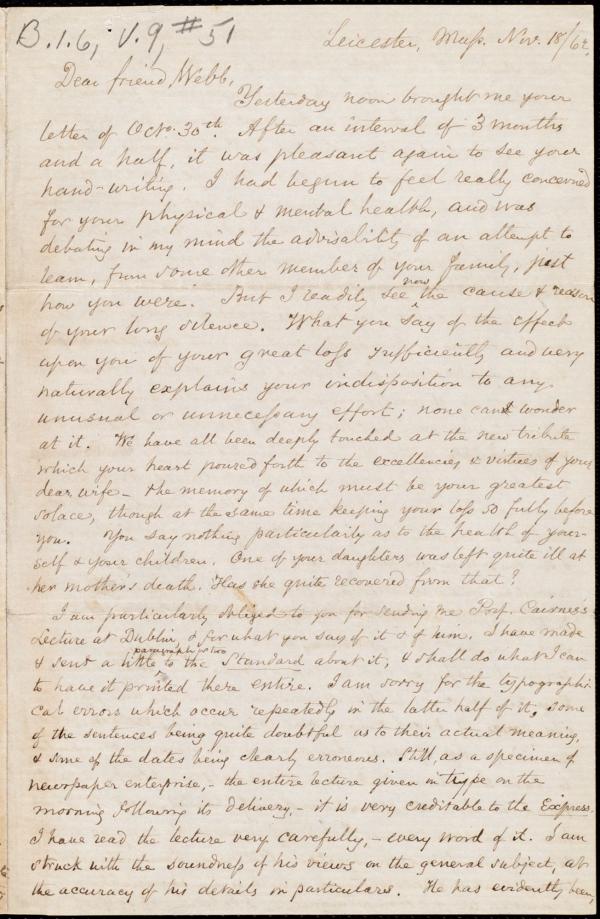 B.1.6, V.9, #51
Leicester, Mass. Nov. 18/62.
Dear friend Webb,
Yesterday noon brought me your
letter of Octo. 30th. After an interval of 3 months
and a half, it was pleasant again to see your
hand-writing. I had begun to feel really concerned
for your physical & mental health, and was
debating in my mind the advisability of an attempt to
learn, from some other member of your family, just
how you were. But I readily see now the cause & reason
of your long silence. What you say of the effect
upon you of your great loss sufficiently and very
naturally explains your indisposition to any
unusual or unnecessary effort; none can wonder
at it. We have all been deeply touched at the new tribute
which your heart poured forth to the excellencies & virtues of your
dear wife – the memory of which must be your greatest
solace, though at the same time keeping your loss so fully before
you. You say nothing particularly as to the health of your-
self & your children. One of your daughters was left quite ill at
her mother's death. Has she quite recovered from that?
I am particularly obliged to you for sending me Prof. Cairnes's
Lecture at Dublin, & for what you say of it & of him. I have made
& sent a little paragraph or two to the Standard about it, & shall do what I can
to have it printed there entire. I am sorry for the typographi-
cal errors which occur repeatedly in the latter half of it, some
of the sentences being quite doubtful as to their actual meaning,
& some of the dates being clearly erroneous. Still, as a specimen of
newspaper enterprise, – the entire lecture given in type on the
morning following its delivery, – it is very creditable to the Express.
I have read the lecture very carefully, – every word of it. I am
struck with the soundness of his views on the general subject, at
the accuracy of his details in particulars. He has evidently been,